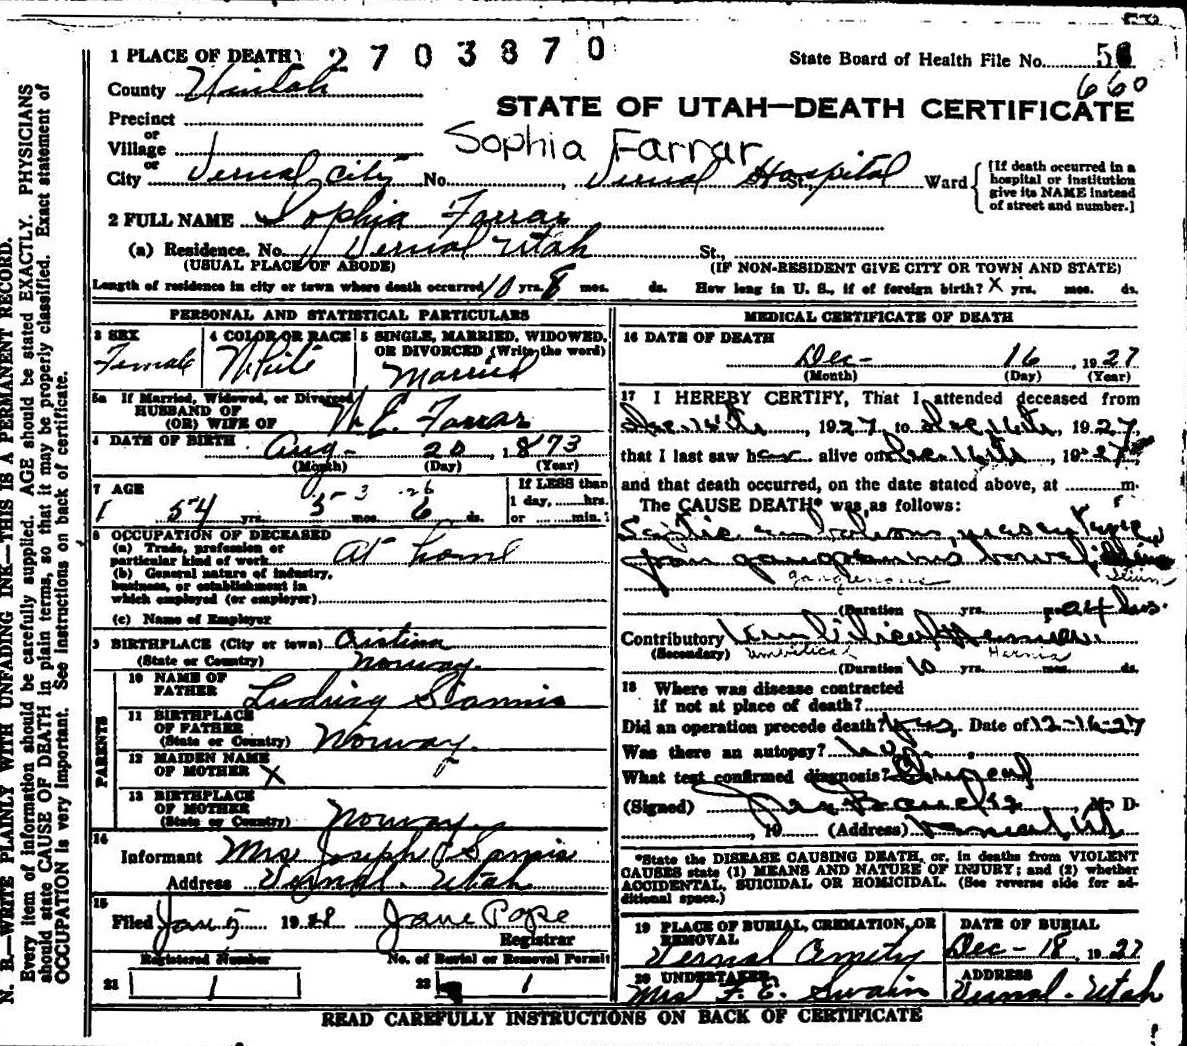 1 PLACE OF DEATH 2703870
State Board of Health File No.
660
County Uintah
STATE OF UTAH—DEATH CERTIFICATE
Precinct
or
Village
Sophia Farrar
or
City Vernal City No. , Vernal Hospital St., Ward
[If death occurred in a hospital or institution give its NAME instead of street and number.]
2 FULL NAME Sophia Farrar
(a) Residence. No. Vernal Utah St.,
(USUAL PLACE OF ABODE) (IF NON-RESIDENT GIVE CITY OR TOWN AND STATE)
Length of residence in city or town where death occurred 10 yrs. 8 mos. ds. How long in U. S., if of foreign birth? X yrs. mos. ds.
PERSONAL AND STATISTICAL PARTICULARS
3 SEX Female
4 COLOR OR RACE White
5 SINGLE, MARRIED, WIDOWED, OR DIVORCED (Write the word) Married
5a If Married, Widowed, or Divorced
HUSBAND OF
(OR) WIFE OF E. Farrar
DATE OF BIRTH Aug- 20, 1873
(Month) (Day) (Year)
7 AGE
54 yrs. mos. 6 ds.
If LESS than
1 day, hrs.
or min.
8 OCCUPATION OF DECEASED
(a) Trade, profession or
particular kind of work At home
(b) General nature of industry,
business, or establishment in
which employed (or employer)
(c) Name of Employer
9 BIRTHPLACE (City or town) Cristina
(State or Country) Norway.
PARENTS
10 NAME OF
FATHER Ludwig
11 BIRTHPLACE
OF FATHER
(State or Country) Norway.
12 MAIDEN NAME
OF MOTHER X
13 BIRTHPLACE
OF MOTHER
(State or Country) Norway.
14
Informant Mrs Joseph
Address Vernal. Utah
15
Filed Jan 5 1928 Jane Pope
Registrar
Registered Number No. of Burial or Removal Permit
21 1 22 1
MEDICAL CERTIFICATE OF DEATH
16 DATE OF DEATH
Dec- 16, 1927
(Month) (Day) (Year)
17 I HEREBY CERTIFY, That I attended deceased from
, 1927, to Dec 16th, 1927,
that I last saw her alive on Dec 16th, 1927,
and that death occurred, on the date stated above, at m.
The CAUSE DEATH* was as follows:
Septic embolism, mesentery
from gangrenous bowel
gangrenous
(Duration yrs. 24 hrs.
Contributory Umbilical Hernia.
(Secondary) Umbilical Hernia
(Duration 10 yrs. mos. ds.
18 Where was disease contracted
if not at place of death?
Did an operation precede death? yes. Date of 12-16-27
Was there an autopsy? no
What test confirmed diagnosis?
(Signed) , M. D.
, 19 (Address) Vernal, Ut
*State the DISEASE CAUSING DEATH, or, in deaths from VIOLENT
CAUSES state (1) MEANS AND NATURE OF INJURY; and (2) whether
ACCIDENTAL, SUICIDAL OR HOMICIDAL. (See reverse side for additional space.)
19 PLACE OF BURIAL, CREMATION, OR REMOVAL
Vernal Cmetry
DATE OF BURIAL
Dec- 18, 1927
20 UNDERTAKER
Mrs F. E. Swain
ADDRESS
Vernal. Utah
READ CAREFULLY INSTRUCTIONS ON BACK OF CERTIFICATE
N. B.—WRITE PLAINLY WITH UNFADING INK—THIS IS A PERMANENT RECORD.
Every item of information should be carefully supplied. AGE should be stated EXACTLY. PHYSICIANS
should state CAUSE OF DEATH in plain terms, so that it may be properly classified. Exact statement of
OCCUPATION is very important. See instructions on back of certificate.